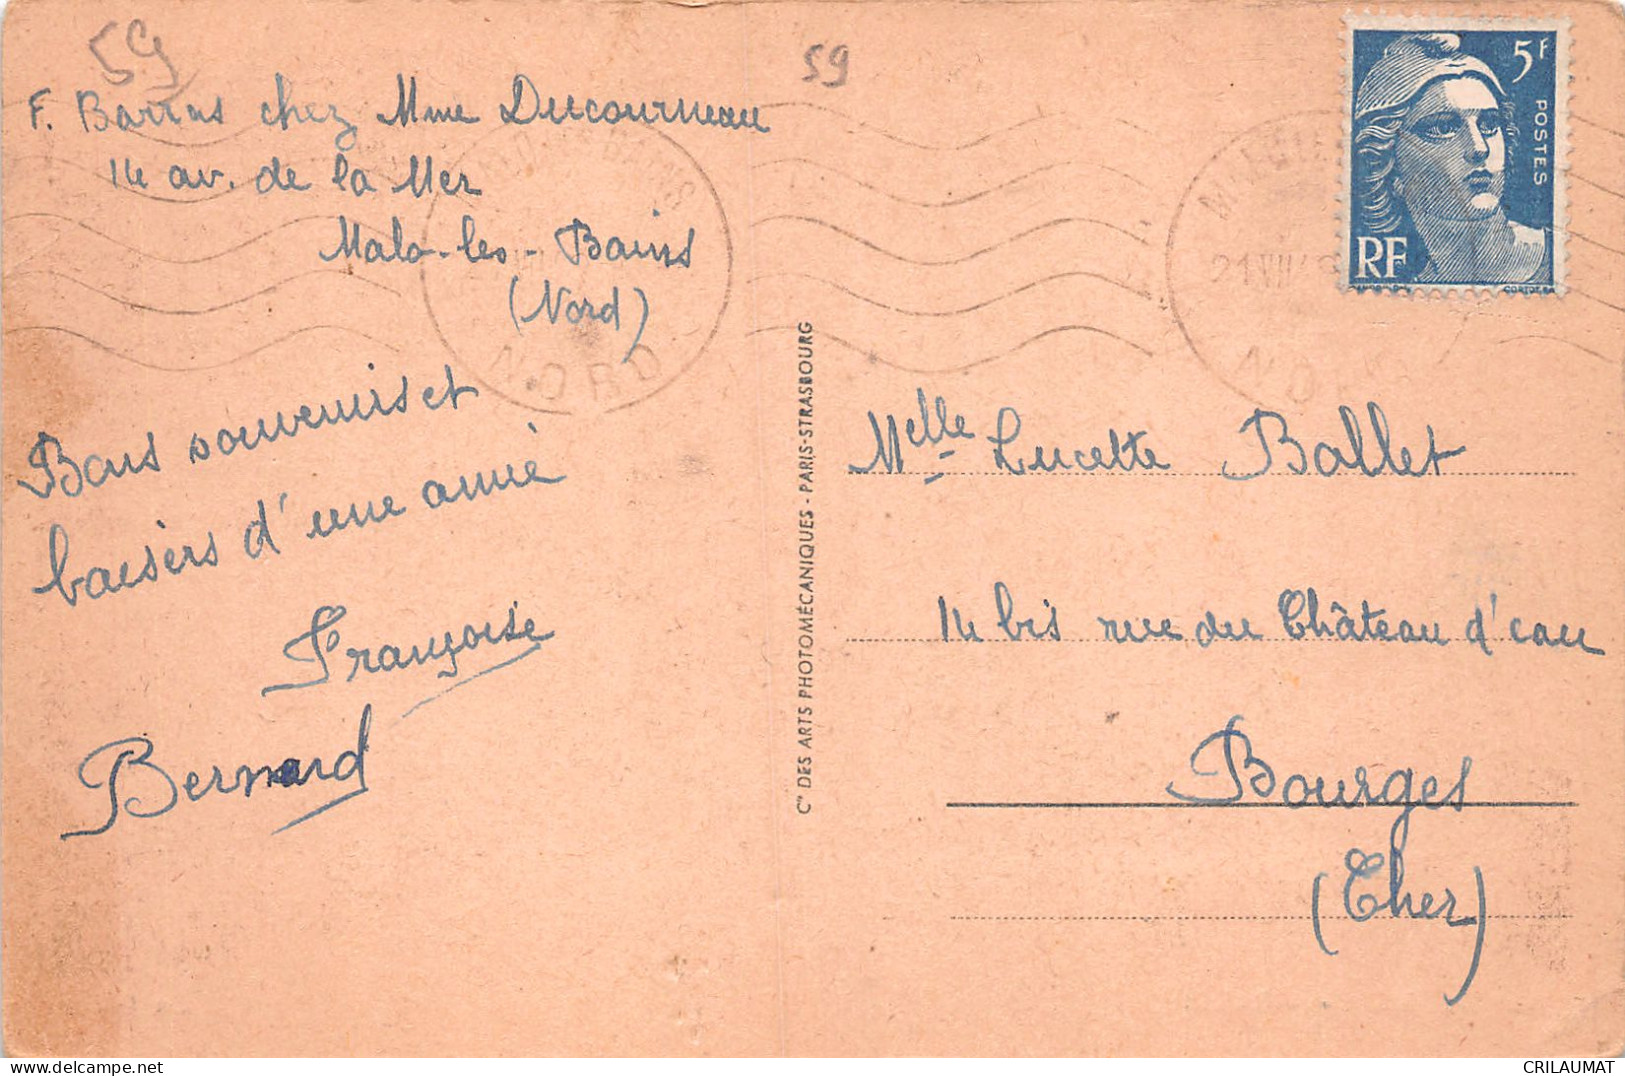 59
59
F. Barras chez Mme Ducourneau
14 av. de la Mer
Malo-les-Bains
(Nord)
NORD
Bons souvenirs et
baisers d'une amie
Françoise
Bernard
Cie DES ARTS PHOTOMÉCANIQUES - PARIS-STRASBOURG
5F
POSTES
RF
21 VII
Melle Lucette Ballet
14 bis rue du Château d'eau
Bourges
(Cher)
CRILAUMAT